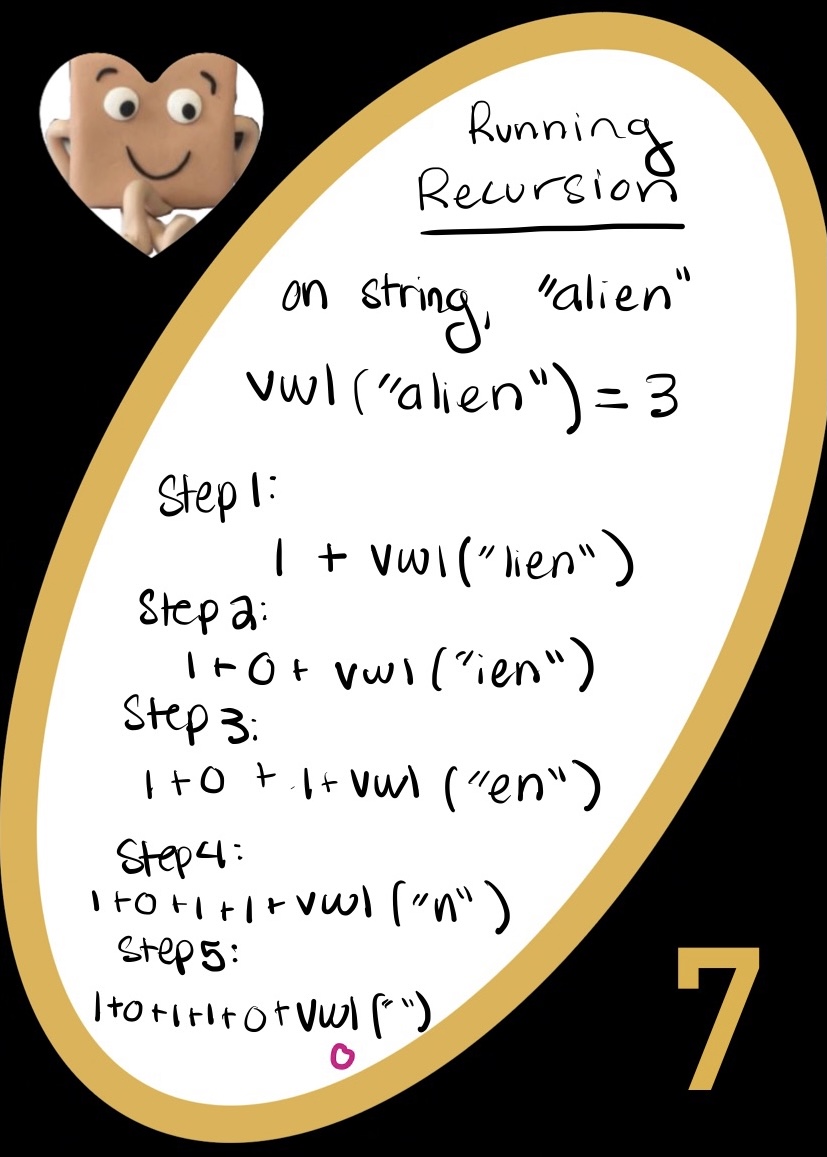 Running
Recursion
on string, "alien"
vwl("alien") = 3
Step 1:
1 + vwl("lien")
Step 2:
1+0+ vwl("ien")
Step 3:
1+0 + 1+ vwl ("en")
Step 4:
1+0+1+1+vwl ("n")
Step 5:
1+0+1+1+0+vwl (" ")
0
7